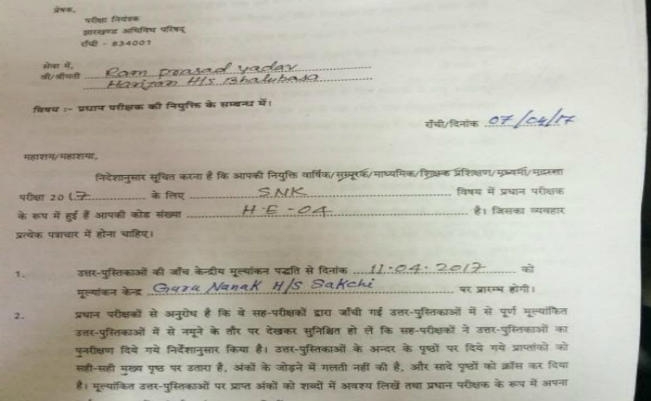 प्रेषक,
परीक्षा नियंत्रक
झारखण्ड अधिविध परिषद्
राँची - 834001
सेवा में,
श्री/श्रीमती Ram prasad yadav
Harijan H/S Bhalubasa
विषय :- प्रधान परीक्षक की नियुक्ति के सम्बन्ध में।
राँची/दिनांक 07/04/17
महाशय/महाशया,
निदेशानुसार सूचित करना है कि आपकी नियुक्ति वार्षिक/सम्पूरक/माध्यमिक/शिक्षक प्रशिक्षण/मध्यमा/मदरसा
परीक्षा 2017 के लिए SNK विषय में प्रधान परीक्षक
के रूप में हुई हैं आपकी कोड संख्या H-E-04 है। जिसका व्यवहार
प्रत्येक पत्राचार में होना चाहिए।
1. उत्तर-पुस्तिकाओं की जाँच केन्द्रीय मूल्यांकन पद्धति से दिनांक 11.04.2017 को
मूल्यांकन केन्द्र Guru Nanak H/S Sakchi पर प्रारम्भ होगी।
2. प्रधान परीक्षकों से अनुरोध है कि वे सह-परीक्षकों द्वारा जाँची गई उत्तर-पुस्तिकाओं में से पूर्ण मूल्यांकित
उत्तर-पुस्तिकाओं में से नमूने के तौर पर देखकर सुनिश्चित हो लें कि सह-परीक्षकों ने उत्तर-पुस्तिकाओं का
पुनरीक्षण दिये गये निर्देशानुसार किया है। उत्तर-पुस्तिकाओं के अन्दर के पृष्ठों पर दिये गये प्राप्तांकों को
सही-सही मुख्य पृष्ठ पर उतारा है, अंकों के जोड़ने में गलती नहीं की है, और सादे पृष्ठों को क्रॉस कर दिया
है। मूल्यांकित उत्तर-पुस्तिकाओं पर प्राप्त अंकों को शब्दों में अवश्य लिखें तथा प्रधान परीक्षक के रूप में अपना